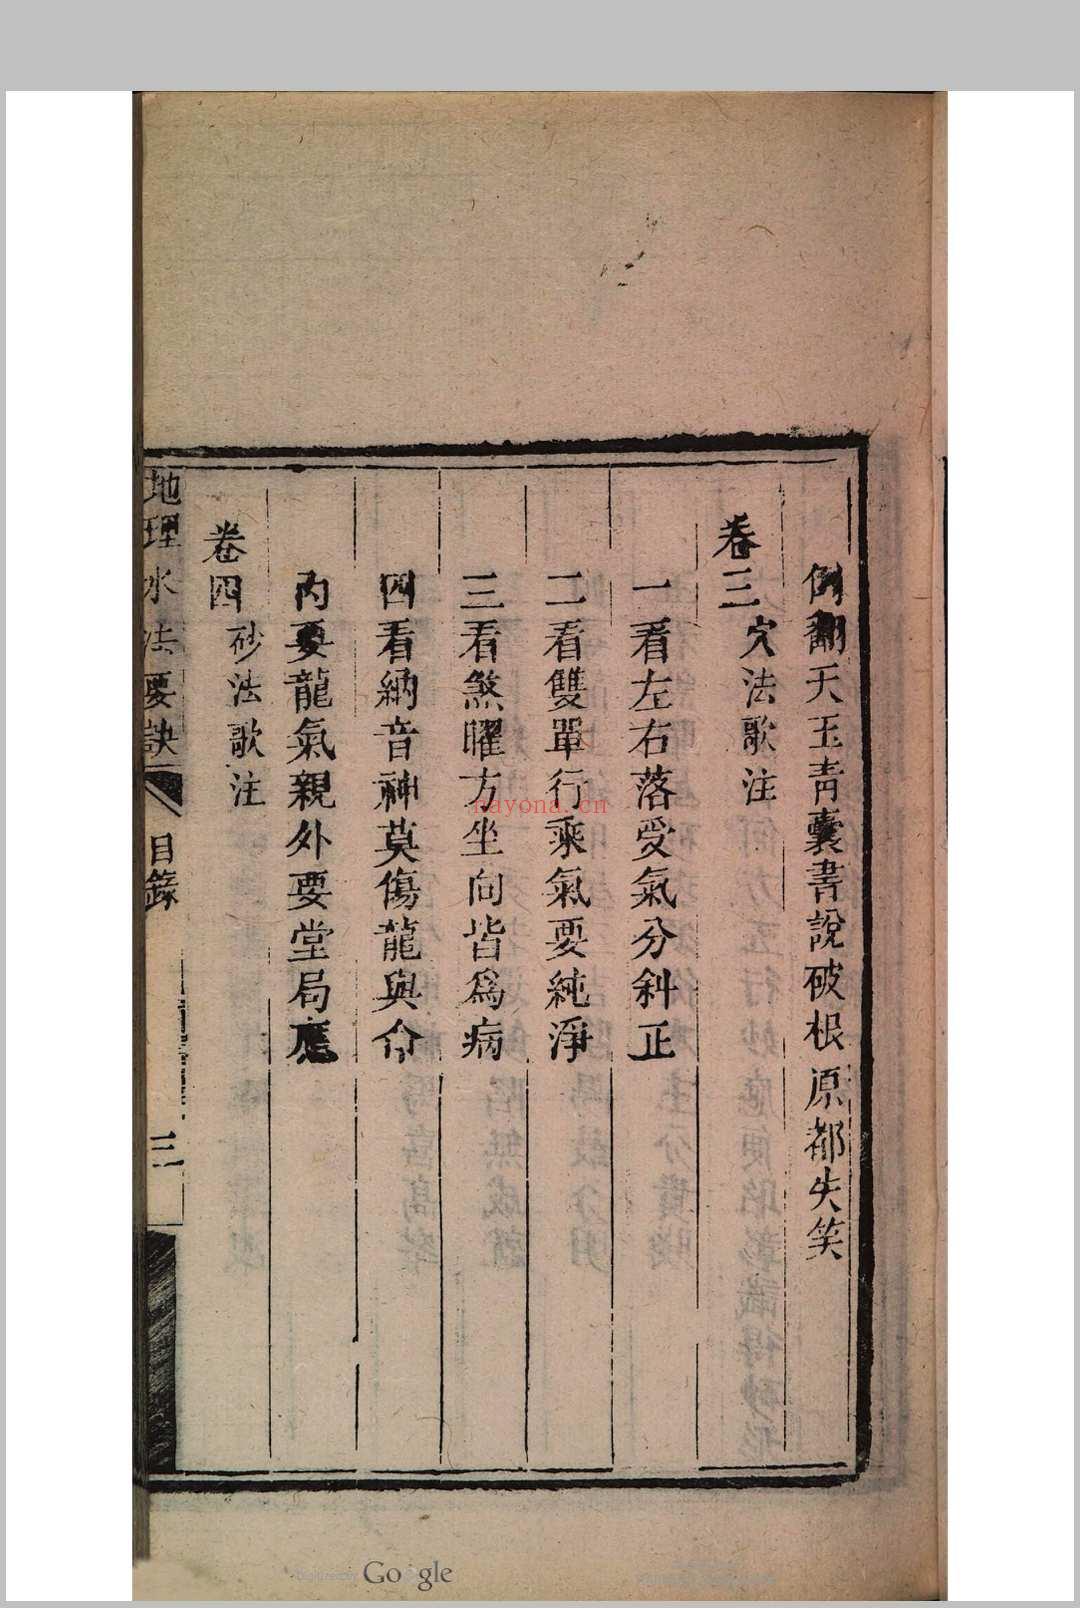 倒翻天玉青囊書說破根原都失笑
卷三 穴法歌注
一看左右落受氣分斜正
二看雙單行乘氣要純淨
三看煞曜方坐向皆爲病
四看納音神莫傷龍與命
內要龍氣親外要堂局應
卷四 砂法歌注
地理水法要訣 目錄 三
nayona.cn
Digitized by Google